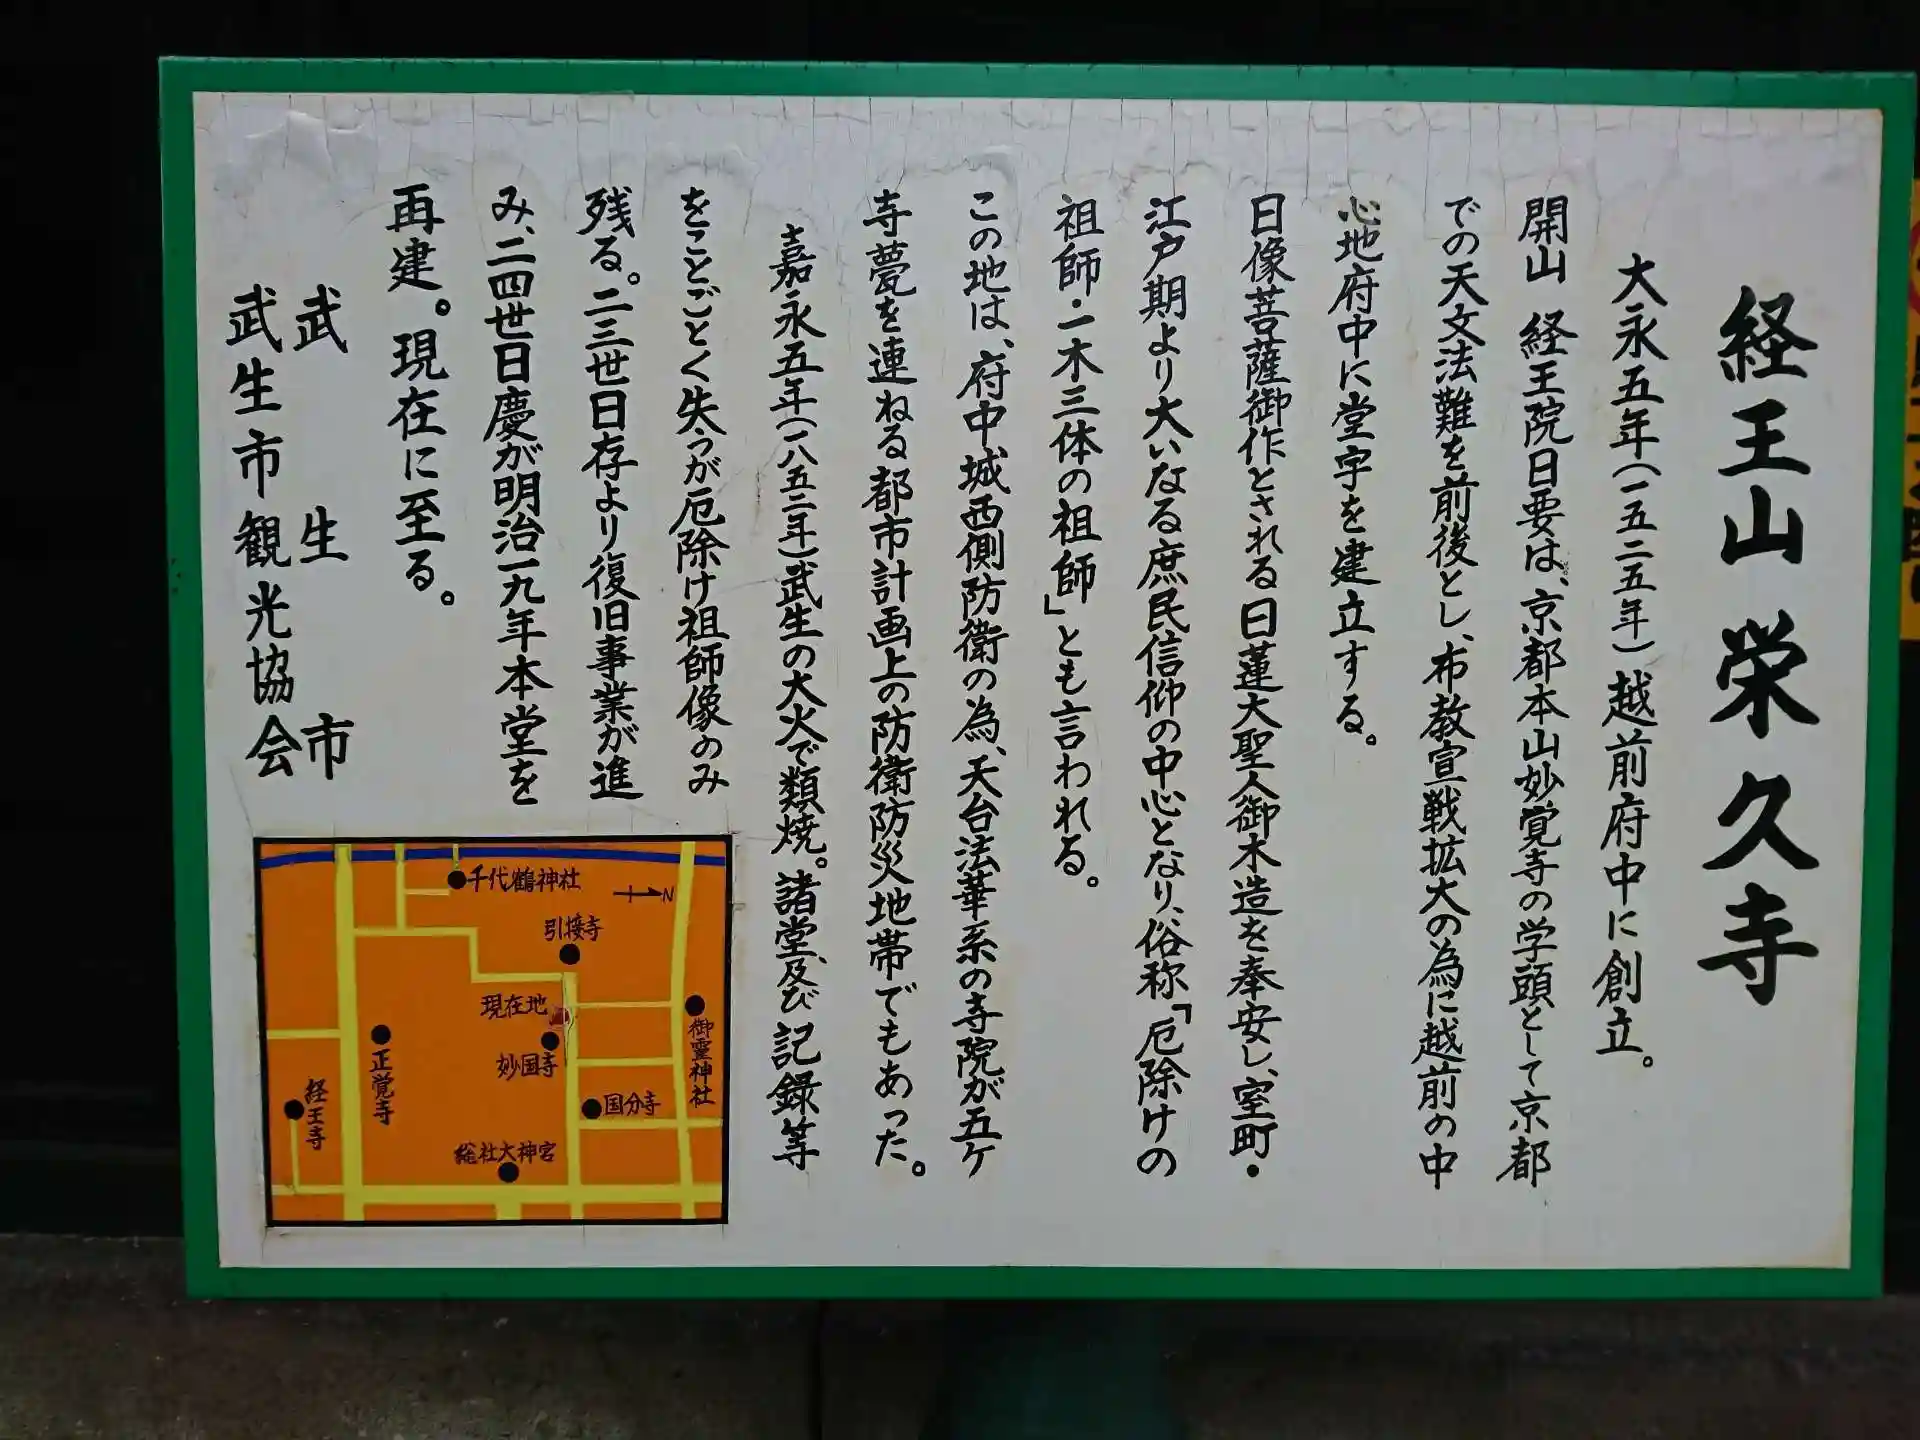 経王山 栄久寺
大永五年(一五二五年)越前府中に創立。
開山 経王院日要は、京都本山妙覚寺の学頭として京都
での天文法難を前後とし、布教宣戦拡大の為に越前の中
心地府中に堂宇を建立する。
日像菩薩御作とされる日蓮大聖人御木造を奉安し、室町・
江戸期より大いなる庶民信仰の中心となり、俗称「厄除けの
祖師・一木三体の祖師」とも言われる。
この地は、府中城西側防衛の為、天台法華系の寺院が五ケ
寺甍を連ねる都市計画上の防衛防災地帯でもあった。
嘉永五年(一八五二年)武生の大火で類焼。諸堂、及び記録等
をことごとく失うが厄除け祖師像のみ
残る。二三世日存より復旧事業が進
み、二四世日慶が明治一九年本堂を
再建。現在に至る。
武生市
武生市観光協会
千代鶴神社
N
引接寺
現在地
御霊神社
妙国寺
正覚寺
国分寺
経王寺
総社大神宮